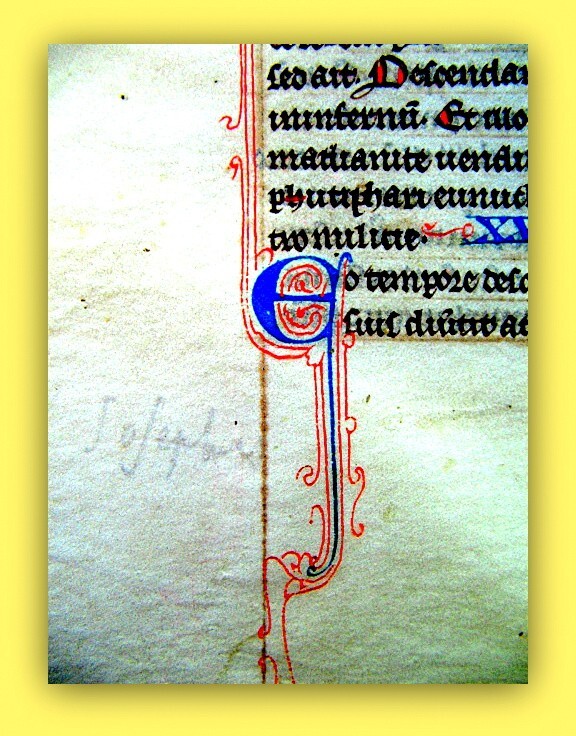 sed ait. Descendam
in infernū. Et illo
madianite uendi
phutiphari eunuc
tro milicie. XX
Eo tempore desc
suis diu̅tit ad
Joseph